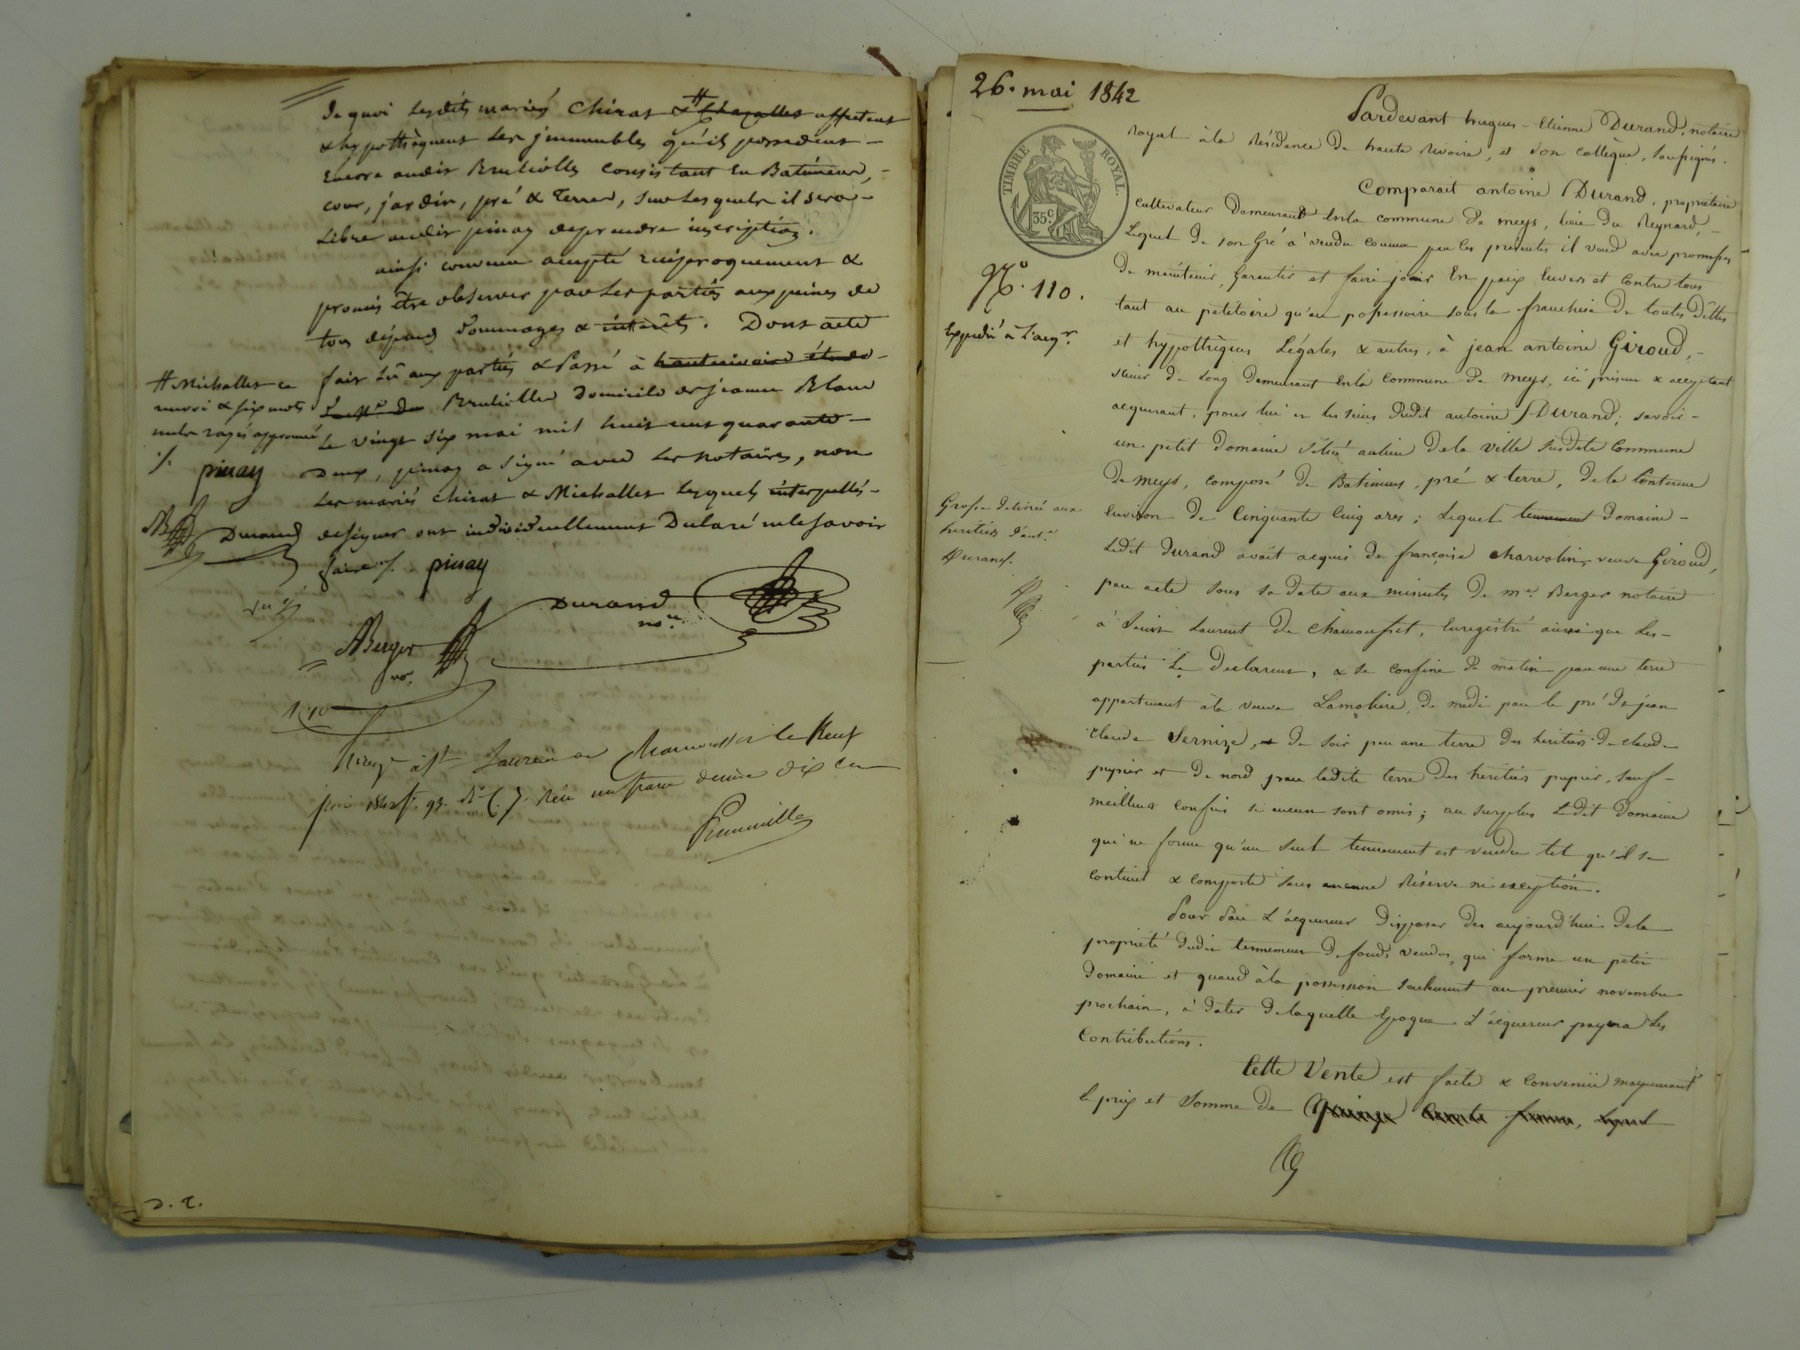 De quoi lesdits mariés Chirat & # Chazalles affectent
& hypothèquent les jmmeubles qu'ils possedent -
Encore audit Brulliolles consistant En Batiments, -
cour, jardin, pré & terres, sur lesquels il sera -
Libre audit pinay deprendre inscription.
ainsi convenu accepté reciproquement &
promis être observer par les parties aux peines de
tous dépends, dommages & intérêts. Dont acte
fait Lû aux parties & Passé à hauterivoire étude -
L. Me. du Brulliolles domicile de jeanne Blanc
le vingt six mai mil huit cent quarante -
Deux, pinay a signé avec les notaires, non
les mariés chirat & Michallet lesquels interpellés -
designer ont individuellement Declaré nele savoir
faire ./. pinay
# Michallet ce
renvoi & six mots
nuls rayés approuvés
./. pinay
Durand
Durand
nore
ABerger
nore
Enregé à St Laurent de Chamousset le Neuf
juin 1842 fo 93. Ro C. 7. Reçu un franc decime dix cen
D. 2.
26. mai 1842
Pardevant hugues - Etienne Durand, notaire
royal à la Résidence De haute rivoire, et son collègue, soussignés.
TIMBRE ROYAL.
35c
Comparait antoine Durand, propriétaire
cultivateur Demeurant Enla commune de meys, lieu du Reynard, -
Lequel de son Gré à vendu comme par les presentes il vend avec promesses
De maintenir, Garentir et faire jouir En paix Envers et Contre tous
No. 110.
tant au petitoire qu'au possessoire sous la franchise De toutes Dettes
Expedié à l'acqr.
et hypothèques Légales & autres, à jean antoine Giroud, -
scieur de long Demeurant Enla Commune De meys, ici présent & acceptant
acquerant, pour lui et les siens Dudit antoine Durand; savoir -
un petit Domaine situé aulieu Dela ville susdite Commune
De meys, composé De Batiments, pré & terre, De la Contenue
Grosse delivrée aux
heritiers d'ant.e
Durand.
Environ De Cinquante Cinq ares; Lequel tennement Domaine -
Ledit Durand avait acquis De françoise charvolin, veuve Giroud,
par acte sous sa date aux minutes De me. Berger notaire
à Saint Laurent De chamousset, Enregistré ainsi que les -
parties Le Declarent, & se confine De matin par une terre
appartenant à la veuve Lamolière, De midi par le pré De jean
Claude Sernize, & De soir par une terre des heritiers De claude
pupier et De nord par ladite terre Des heritiers pupier, sauf -
meilleurs confins si aucun sont omis; au surplus Ledit Domaine
qui ne forme qu'un seul tennement est vendu tel qu'il se
contient & comporte sans aucune Réserve ni exception.
Pour par L'acquereur Disposer Des aujourd'hui Dela
propriété Dudit tennement De fonds vendus, qui forme un petit
Domaine et quand àla possession seulement au premier novembre
prochain, à Dater Delaquelle Epoque L'acquereur payera Les
Contributions.
Cette Vente est faite & Convenüe moyennant
le prix et Somme De